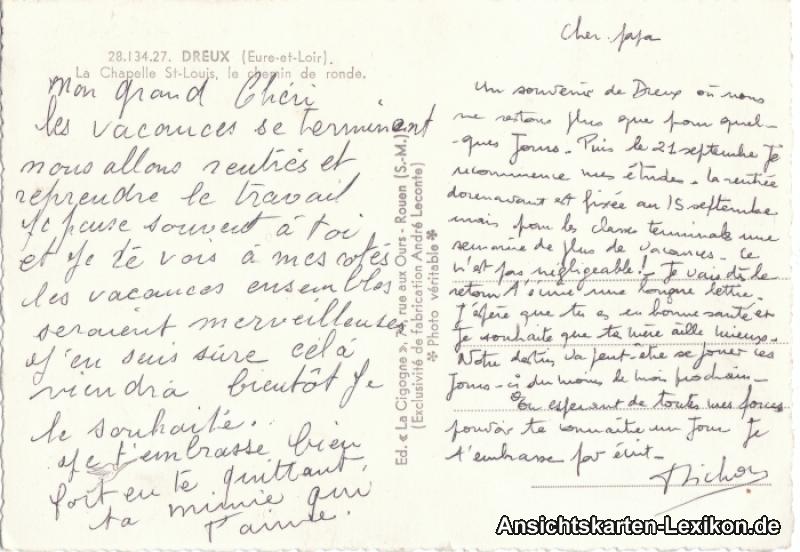 28.134.27. DREUX (Eure-et-Loir).
La Chapelle St-Louis, le chemin de ronde.
Mon grand Chéri
les vacances se terminent
nous allons rentrés et
reprendre le travail
Je pense souvent à toi
et Je te vois à mes cotés
les vacances ensembles
seraient merveilleuses
J'en suis sûre célà
viendra bientôt Je
le souhaite.
Je t'embrasse bien
fort en te quittant,
ta mimie qui
t'aime.
Ed. « La Cigogne », rue aux Ours - Rouen (S.-M.)
(Exclusivité de fabrication André Leconte)
✻ Photo véritable ✻
Cher papa
Un souvenir de Dreux où nous
ne restons plus que pour quel-
-ques Jours. Puis le 21 septembre Je
recommence mes études. la rentrée
dorenavant est fixée au 15 septembre
mais pour les classes terminales une
semaine de plus de vacances. Ce
n'est pas négligeable! - Je vais dès le
retour t'écrire une longue lettre.
J'espère que tu es en bonne santé et
Je souhaite que ta mère aille mieux.
Notre destin va peut-être se jouer ces
Jours-ci du moins le mois prochain -
En espérant de toutes mes forces
pouvoir te connaître un Jour Je
t'embrasse par écrit -
Ansichtskarten-Lexikon.de